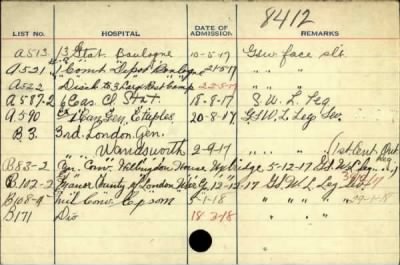 8412
LIST NO. HOSPITAL DATE OF ADMISSION REMARKS
A513 13 Stat. Boulogne 10-5-17 Gsw face slt.
A521 1 Conv. Depot Boulogne 21-5-17 " " "
A522 Disch to 3 Large Rest Camp 22-5-17 " " "
A587-2 6 Cas. Cl. Stat. 18-8-17 S.W. L. Leg
A590 Gen. Etaples 20-8-17 GSW L. Leg Sev.
B3. 3rd. London. Gen.
Wandsworth 2-9-17 " " "
B83-2 Conv. House 5-12-17
B102-2 Manor County of London War 12-12-17 W L Leg Sev.
B108-4 Mil Conv Epsom 5-1-18 29-1-18
B171 Dio 18-2-18